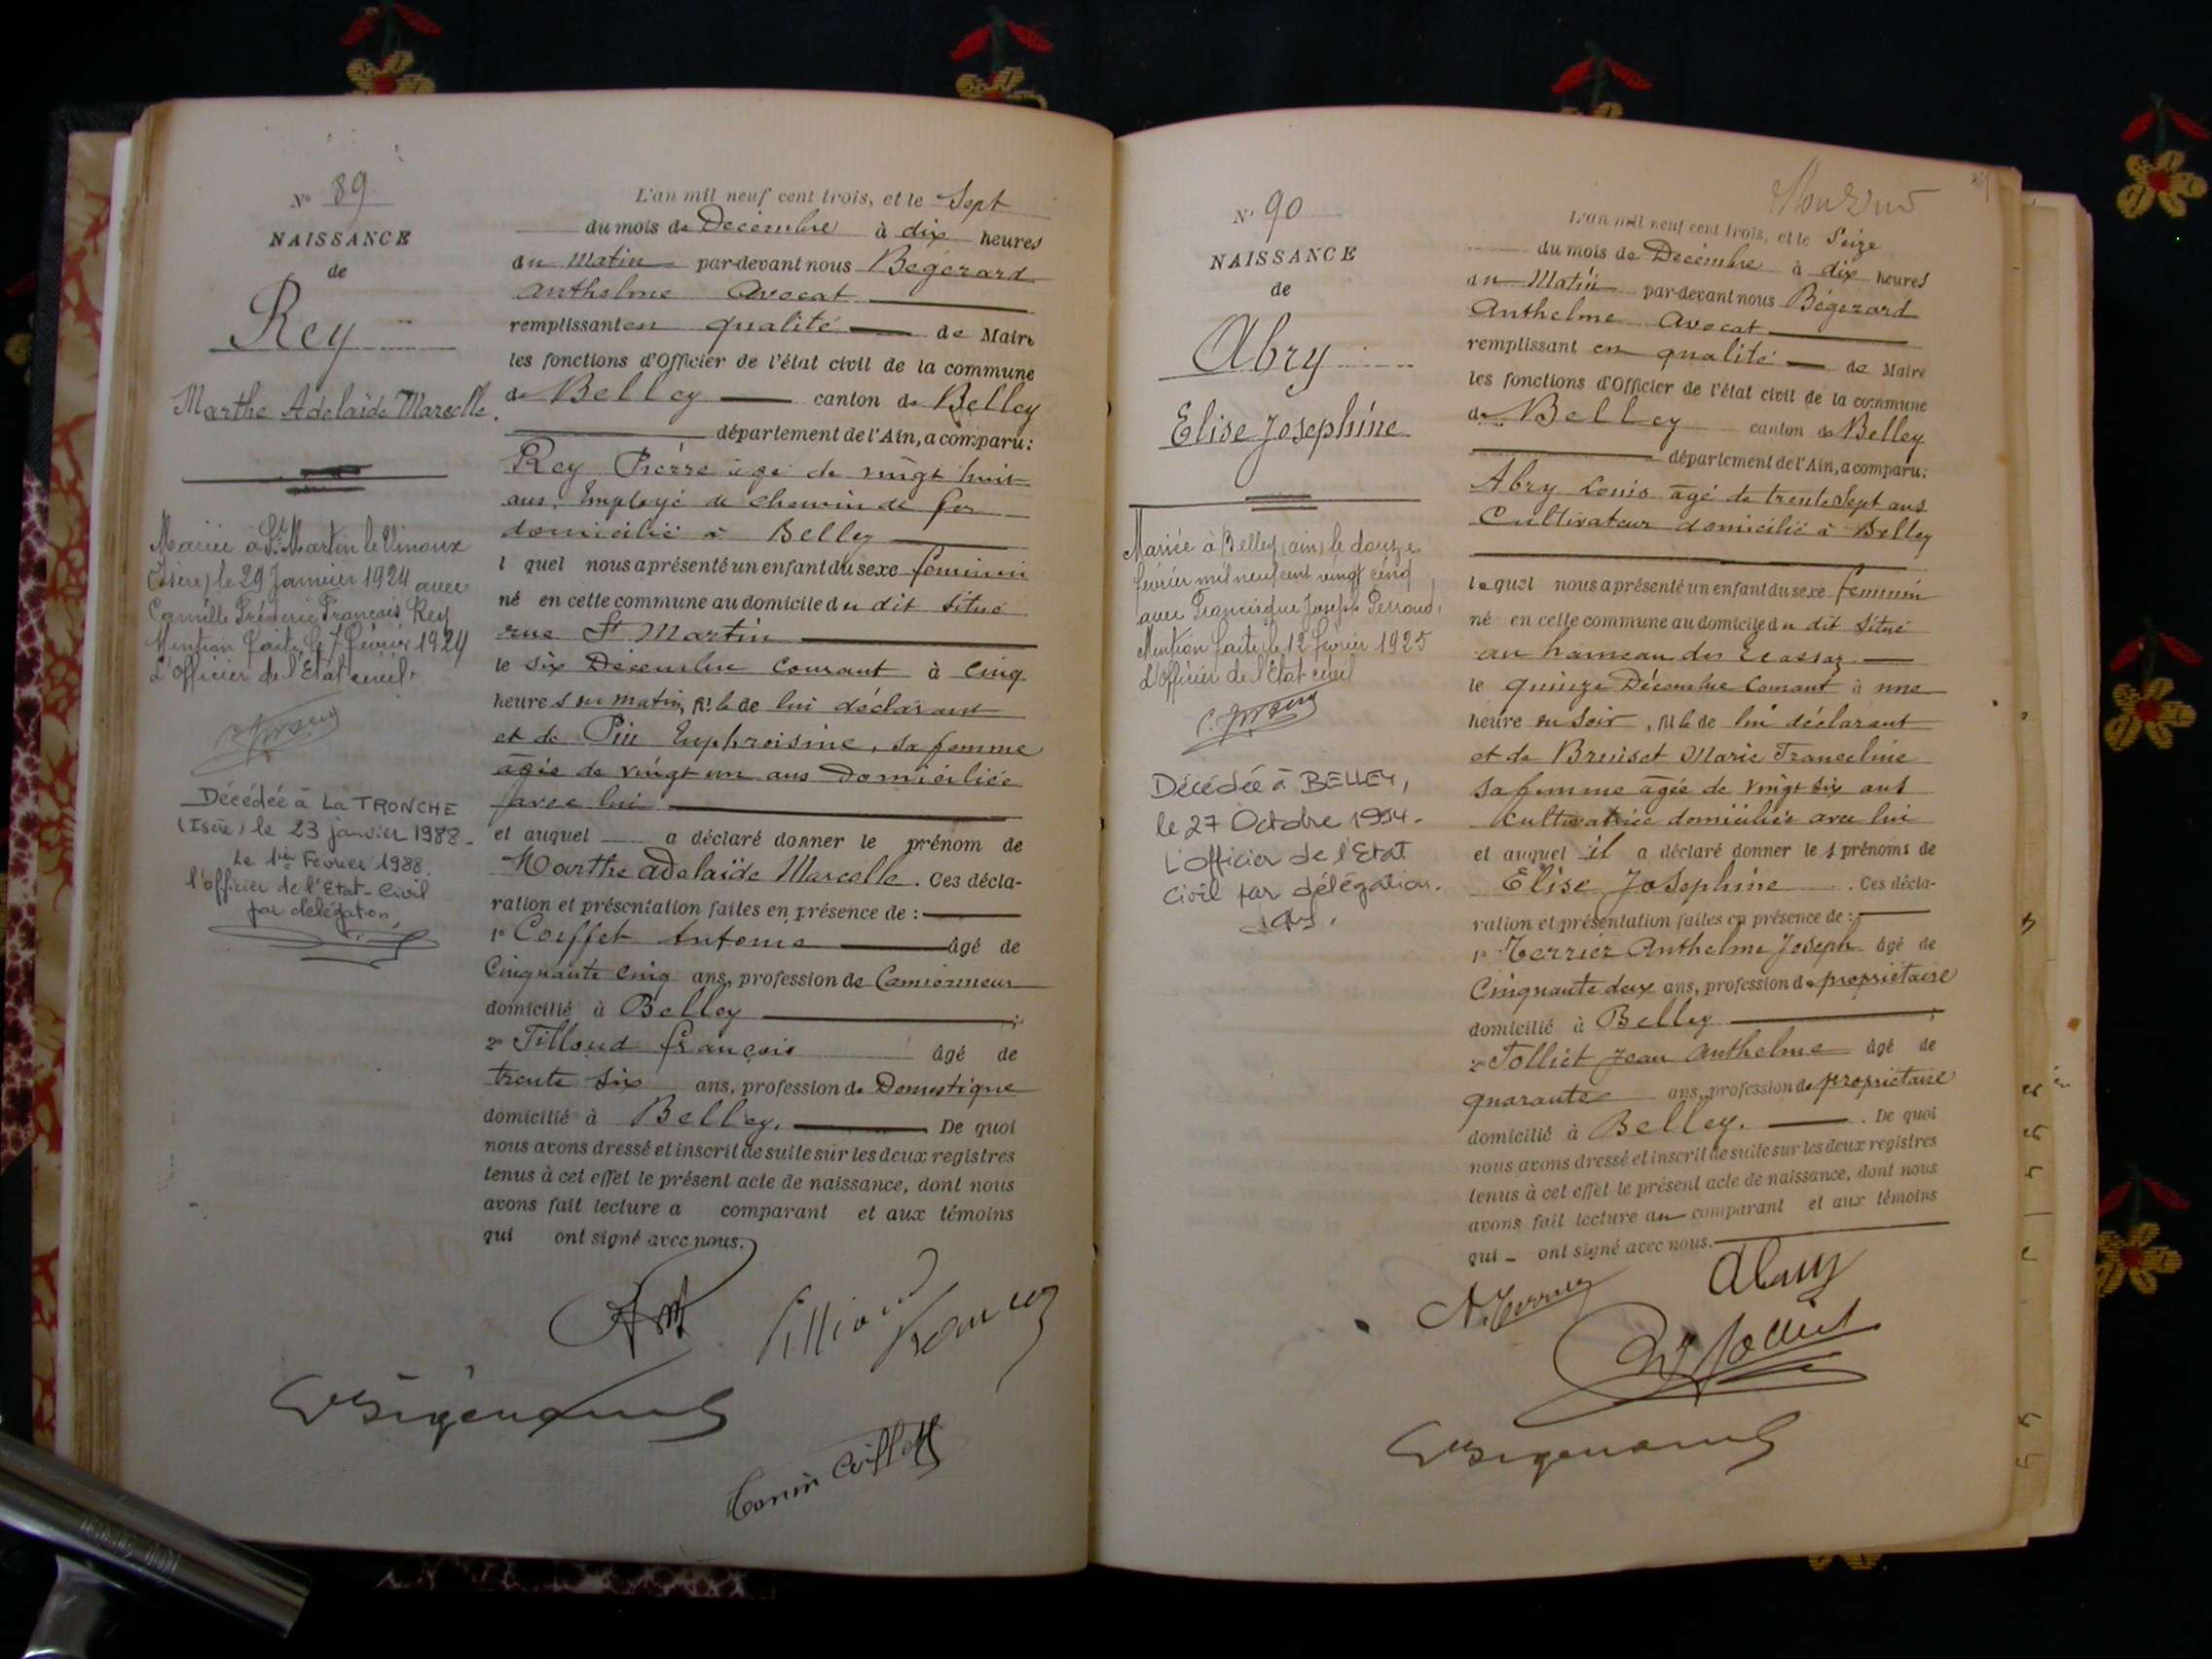 N° 89
NAISSANCE
de
Rey
Marthe Adelaïde Marcelle.
Mariée à St Martin le Vinoux
(Isère) le 29 Janvier 1924 avec
Camille Fréderic François Rey
Mention faite le 7 février 1924
L'officier de l'Etat civil.
Décédée à LA TRONCHE
(Isère) le 23 janvier 1988.
Le 1er Février 1988.
l'officier de l'Etat-Civil
par délégation,
L'an mil neuf cent trois, et le Sept
du mois de Décembre à dix heures
du Matin par-devant nous Bégerard
Anthelme Avocat
remplissant en qualité de Maire
les fonctions d'Officier de l'état civil de la commune
de Belley canton de Belley
département de l'Ain, a comparu:
Rey Pierre âgé de vingt huit
ans, Employé de chemin de fer
domicilié à Belley
l quel nous a présenté un enfant du sexe feminin
né en cette commune au domicile du dit situé
rue St Martin
le six Décembre courant à cinq
heures du matin, fille de lui déclarant
et de Euphroisine, sa femme
agée de vingt un ans domiciliée
avec lui
et auquel a déclaré donner le prénom de
Marthe adelaïde Marcelle. Ces décla-
ration et présentation faites en présence de :
1° Coiffet Antoine âgé de
Cinquante cinq ans, profession de Camionneur
domicilié à Belley ;
2° Tilloud françois âgé de
trente six ans, profession de Domestique
domicilié à Belley. De quoi
nous avons dressé et inscrit de suite sur les deux registres
tenus à cet effet le présent acte de naissance, dont nous
avons fait lecture a comparant et aux témoins
qui ont signé avec nous.
Tilliou
Bégerard
N° 90
NAISSANCE
de
Abry
Elise Josephine
Mariée à Belley (ain) le douze
février mil neuf cent vingt cinq
avec Francisque Joseph Perroud,
Mention faite le 12 février 1925
L'officier de l'Etat civil
Décédée à BELLEY,
le 27 Octobre 1994.
L'officier de l'Etat
Civil par délégation.
L'an mil neuf cent trois, et le Seize
du mois de Décembre à dix heures
du Matin par-devant nous Bégerard
Anthelme Avocat
remplissant en qualité de Maire
les fonctions d'Officier de l'état civil de la commune
de Belley canton de Belley
département de l'Ain, a comparu:
Abry Louis âgé de trente Sept ans
Cultivateur domicilié à Belley
lequel nous a présenté un enfant du sexe feminin
né en cette commune au domicile du dit situé
au hameau des Ecassaz
le quinze Décembre Courant à une
heure du Soir, fille de lui déclarant
et de Bruiset Marie Franceline
sa femme âgée de vingt six ans
Cultivatrice domiciliée avec lui
et auquel il a déclaré donner les prénoms de
Elise Josephine. Ces décla-
ration et présentation faites en présence de :
1° Terrier Anthelme Joseph âgé de
Cinquante deux ans, profession de propriétaire
domicilié à Belley ;
2° Tolliet Jean Anthelme âgé de
quarante ans, profession de propriétaire
domicilié à Belley. De quoi
nous avons dressé et inscrit de suite sur les deux registres
tenus à cet effet le présent acte de naissance, dont nous
avons fait lecture au comparant et aux témoins
qui ont signé avec nous.
A. Terrier
Abry
Tolliet
Bégerard